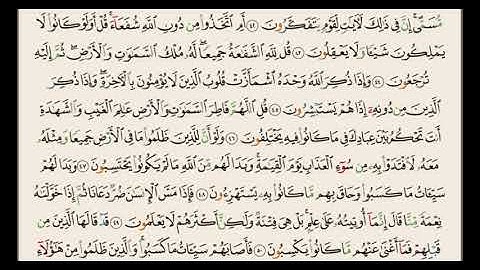 مُّسَمًّى ۚ إِنَّ فِي ذَٰلِكَ لَآيَاتٍ لِّقَوْمٍ يَتَفَكَّرُونَ ٤٢ أَمِ اتَّخَذُوا مِن دُونِ اللَّهِ شُفَعَاءَ ۚ قُلْ أَوَلَوْ كَانُوا لَا
يَمْلِكُونَ شَيْئًا وَلَا يَعْقِلُونَ ٤٣ قُل لِّلَّهِ الشَّفَاعَةُ جَمِيعًا ۖ لَّهُ مُلْكُ السَّمَاوَاتِ وَالْأَرْضِ ۖ ثُمَّ إِلَيْهِ
تُرْجَعُونَ ٤٤ وَإِذَا ذُكِرَ اللَّهُ وَحْدَهُ اشْمَأَزَّتْ قُلُوبُ الَّذِينَ لَا يُؤْمِنُونَ بِالْآخِرَةِ ۖ وَإِذَا ذُكِرَ
الَّذِينَ مِن دُونِهِ إِذَا هُمْ يَسْتَبْشِرُونَ ٤٥ قُلِ اللَّهُمَّ فَاطِرَ السَّمَاوَاتِ وَالْأَرْضِ عَالِمَ الْغَيْبِ وَالشَّهَادَةِ
أَنتَ تَحْكُمُ بَيْنَ عِبَادِكَ فِي مَا كَانُوا فِيهِ يَخْتَلِفُونَ ٤٦ وَلَوْ أَنَّ لِلَّذِينَ ظَلَمُوا مَا فِي الْأَرْضِ جَمِيعًا وَمِثْلَهُ
مَعَهُ لَافْتَدَوْا بِهِ مِن سُوءِ الْعَذَابِ يَوْمَ الْقِيَامَةِ ۚ وَبَدَا لَهُم مِّنَ اللَّهِ مَا لَمْ يَكُونُوا يَحْتَسِبُونَ ٤٧ وَبَدَا لَهُمْ
سَيِّئَاتُ مَا كَسَبُوا وَحَاقَ بِهِم مَّا كَانُوا بِهِ يَسْتَهْزِئُونَ ٤٨ فَإِذَا مَسَّ الْإِنسَانَ ضُرٌّ دَعَانَا ثُمَّ إِذَا خَوَّلْنَاهُ
نِعْمَةً مِّنَّا قَالَ إِنَّمَا أُوتِيتُهُ عَلَىٰ عِلْمٍ ۚ بَلْ هِيَ فِتْنَةٌ وَلَٰكِنَّ أَكْثَرَهُمْ لَا يَعْلَمُونَ ٤٩ قَدْ قَالَهَا الَّذِينَ مِن
قَبْلِهِمْ فَمَا أَغْنَىٰ عَنْهُم مَّا كَانُوا يَكْسِبُونَ ٥٠ فَأَصَابَهُمْ سَيِّئَاتُ مَا كَسَبُوا ۚ وَالَّذِينَ ظَلَمُوا مِنْ هَٰؤُلَاءِ